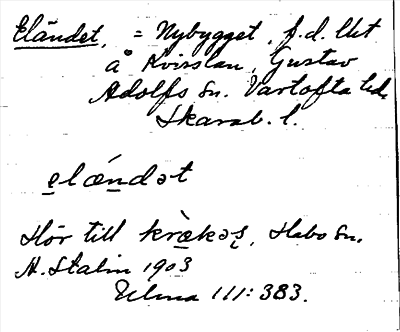 Eländet, = Nybygget, f.d. lht
å Kvirslan, Gustav
Adolfs sn. Vartofta hd.
Skarab. l.
elǽndət
Hör till krækəs, Habo sn.
N. Stalin 1903
Ulma 111:383.